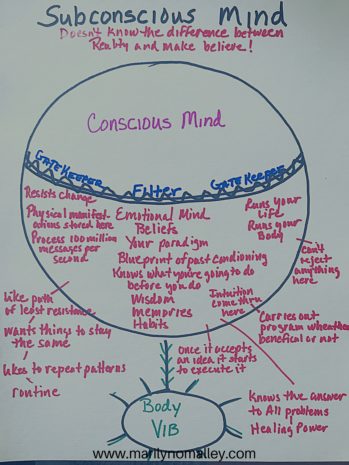 Subconscious Mind
Doesn't know the difference between
Reality and make believe!
Conscious Mind
GATEKEEPER
Filter
GATEKEEPER
Resists change
Physical manifest
ations stored here
Process 100 million
messages per
second
Emotional Mind
Beliefs
Your paradigm
Blueprint of past condioning
Knows what you're going to do
before you do
Wisdom
memories
Habits
Runs your
Life
Runs your
Body
Intuition
come thru
here
can't
reject
anything
here
Like path
of least resistance
wants things to stay
the same
likes to repeat patterns
routine
once it accepts
an idea it starts
to execute it
Carries out
program wheather
benefical or not
Knows the answer
to All problems
Healing Power
Body
VIB
www.marilynomalley.com